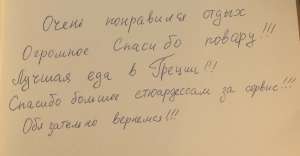 Очень понравился отдых
Огромное Спасибо повару!!!
Лучшая еда в Греции!!
Спасибо большое стюардессам за сервис!!!
Обязательно вернемся!!!